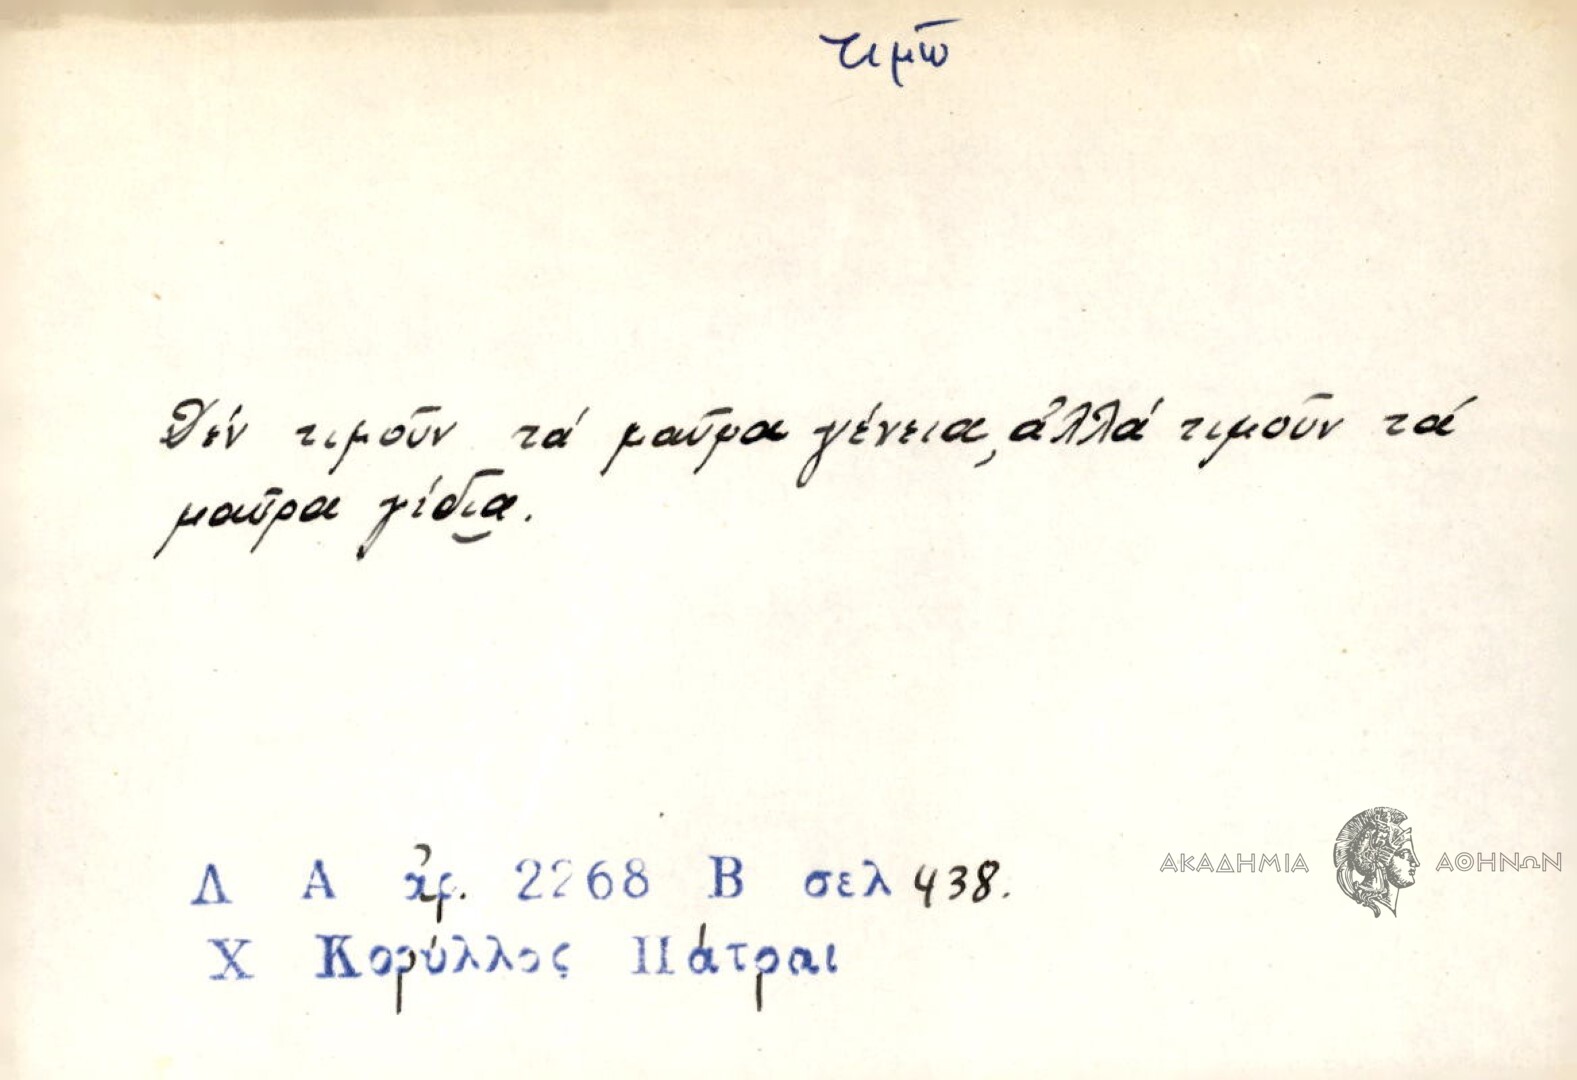 τιμῶ
Δέν τιμοῦν τά μαῦρα γένεια, ἀλλά τιμοῦν τά
μαῦρα γίδια.
Λ Α ἀρ. 2268 Β σελ 438.
Χ Κορύλλος Πάτραι
ΑΚΑΔΗΜΙΑ ΑΘΗΝΩΝ